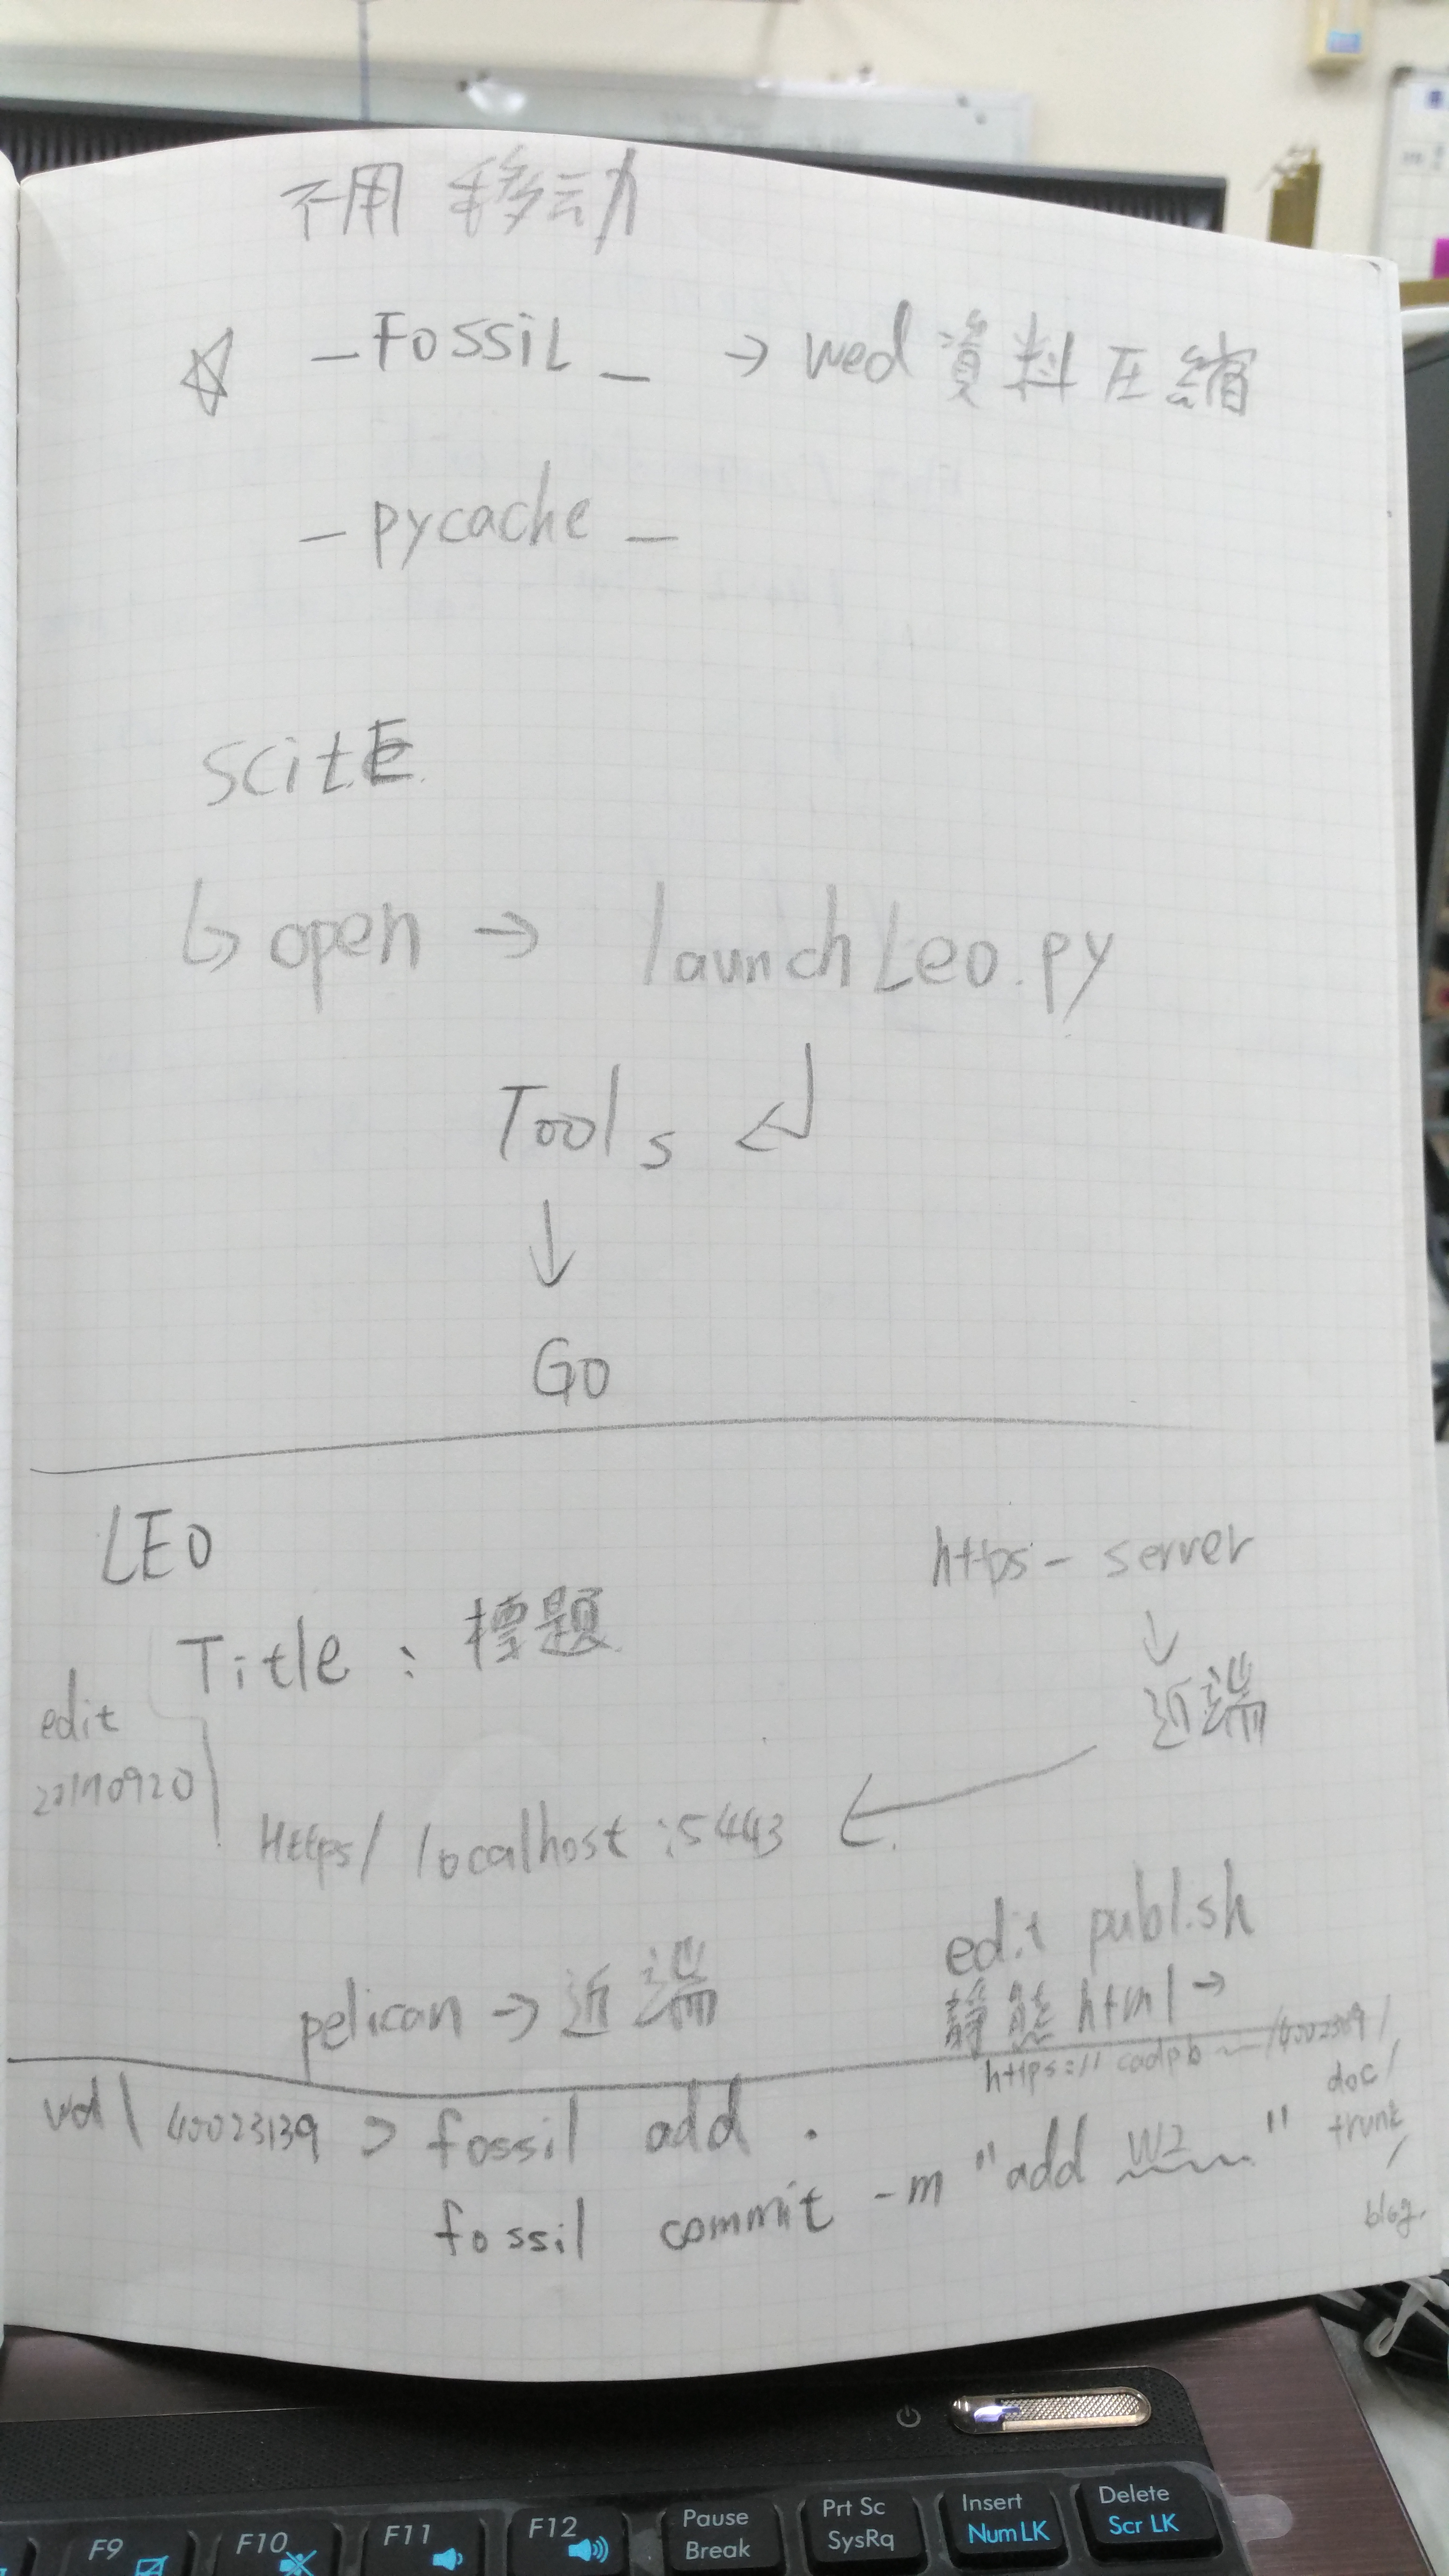 不用 移动
☆ _FOSSiL_ → wed 資料压縮
_pycache_
scitE
↳ open → launchLeo.py
Tools ↲
↓
Go
LEO
https - server
↓
近端
Title : 標題
edit
20170920
Https/ localhost :5443 ←
edit publish
pelican → 近端
靜態 html →
https://cadpb ~ /40023139/
doc/
trunk
/
blog.
wd \ 40023139 > fossil add .
fossil commit -m "add W2 "
F9
F10
F11
F12
Pause
Break
Prt Sc
SysRq
Insert
Num LK
Delete
Scr LK